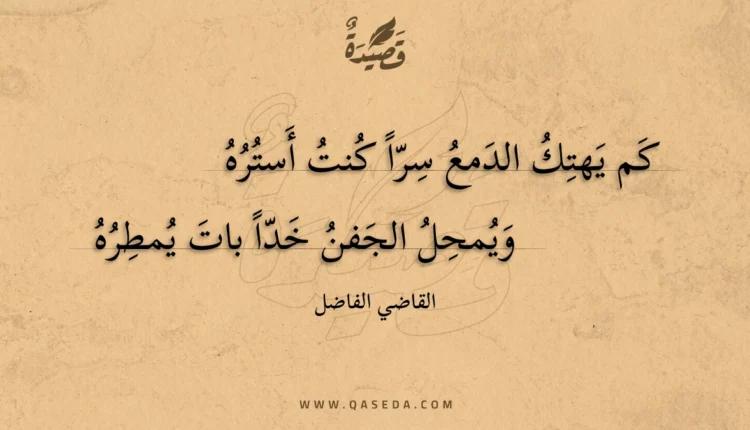 قَصِيْدَةٌ
كَم يَهتِكُ الدَمعُ سِرّاً كُنتُ أَستُرُهُ
وَيُمحِلُ الجَفنُ خَدّاً باتَ يُمطِرُهُ
القاضي الفاضل
WWW.QASEDA.COM